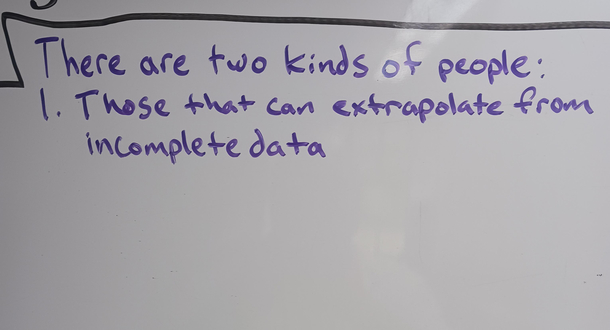 There are two kinds of people:
1. Those that can extrapolate from
incomplete data